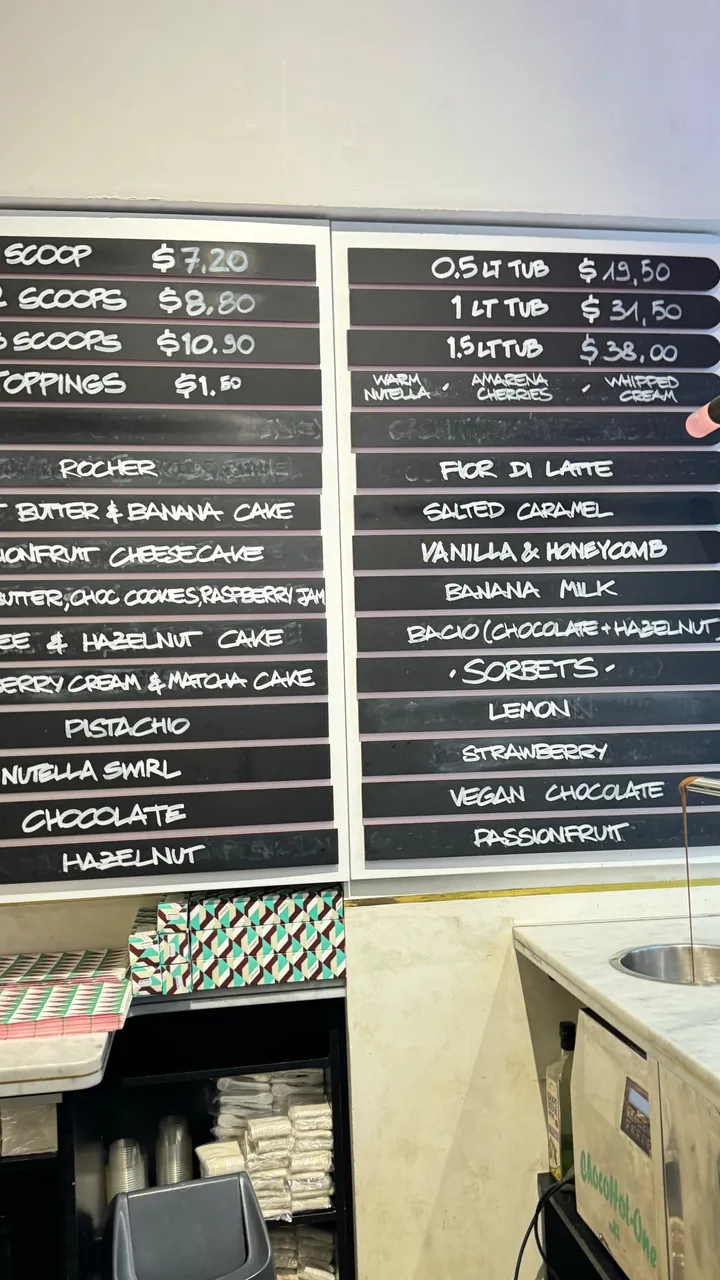 SCOOP $7,20
2 SCOOPS $8,80
3 SCOOPS $10.90
TOPPINGS $1.50
ROCHER
BUTTER & BANANA CAKE
IONFRUIT CHEESECAKE
BUTTER, CHOC COOKIES, RASPBERRY JAM
EE & HAZELNUT CAKE
BERRY CREAM & MATCHA CAKE
PISTACHIO
NUTELLA SWIRL
CHOCOLATE
HAZELNUT
0.5 LT TUB $19,50
1 LT TUB $31,50
1.5 LT TUB $38,00
WARM NUTELLA · AMARENA CHERRIES · WHIPPED CREAM
FIOR DI LATTE
SALTED CARAMEL
VANILLA & HONEYCOMB
BANANA MILK
BACIO (CHOCOLATE + HAZELNUT
· SORBETS ·
LEMON
STRAWBERRY
VEGAN CHOCOLATE
PASSIONFRUIT
ChocoHot-One